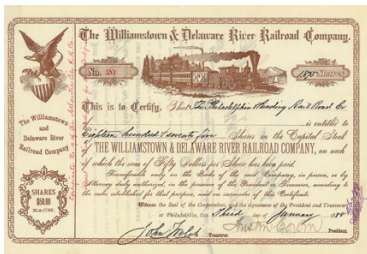 The Williamstown & Delaware River Railroad Company.
No. 20
1875 Shares
This is to Certify, that The Philadelphia & Reading Rail Road Co
is entitled to
Eighteen hundred & seventy five Shares in the Capital Stock
of THE WILLIAMSTOWN & DELAWARE RIVER RAILROAD COMPANY, on each
of which the sum of Fifty Dollars per Share has been paid.
Transferable only on the Books of the said Company, in person, or by
Attorney duly authorized, in the presence of the President or Treasurer, according to
the rules established for that purpose, and on surrender of this Certificate.
Witness the Seal of the Corporation, and the signatures of the President and Treasurer
at Philadelphia, this Third day of January 188
John Welch
Treasurer.
President.
The Williamstown
and
Delaware River
Railroad Company
SHARES
$50.00
EACH.